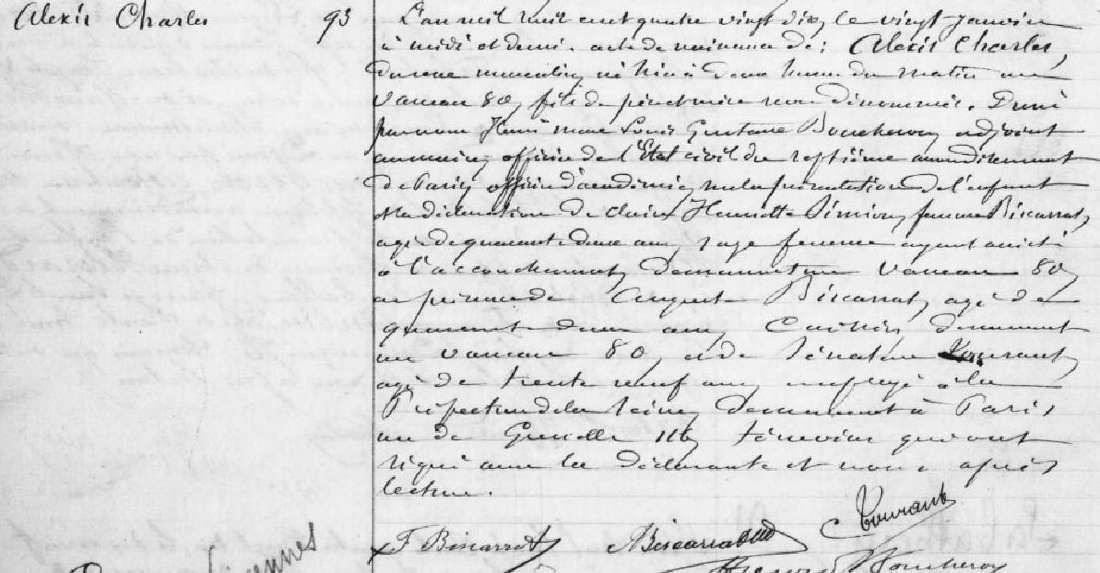 Alexis Charles 93
L'an mil huit cent quatre vingt dix, le vingt Janvier
à midi et demi. acte de naissance de: Alexis Charles,
du sexe masculin, né hier à deux heures du matin rue
Vaneau 80, fils de père et mère non dénommés. Dressé
par nous Henri Louis Gustave Boucheron, adjoint
au maire, officier de l'Etat civil du septième arrondissement
de Paris, officier d'académie, sur la présentation de l'enfant
et la déclaration de Henriette femme Biscarrat,
agée de quarante deux ans, sage femme ayant assisté
à l'accouchement, demeurant rue Vaneau 80,
en présence de August Biscarrat, agé de
quarante deux ans, demeurant
rue Vaneau 80, et de Sénateur Tourant,
agé de trente neuf ans, employé à la
Préfecture de la Seine, demeurant à Paris
rue de Grenelle 116, témoins qui ont
signé avec la déclarante et nous après
lecture.
F Biscarrat A Biscarrat Tourant
Boucheron